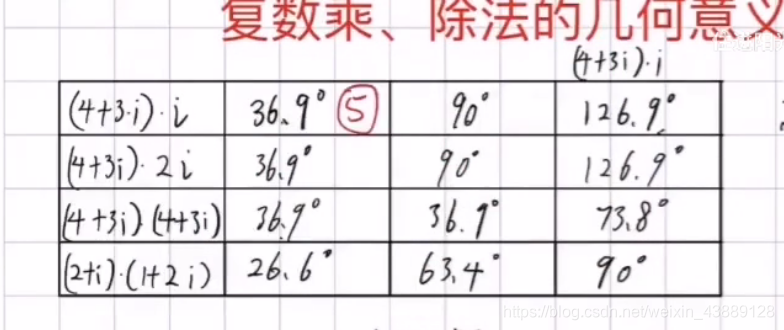 复数乘、除法的几何意义
(4+3i)·i
(4+3·i)·i 36.9° ⑤ 90° 126.9°
(4+3i)·2i 36.9° 90° 126.9°
(4+3i)(4+3i) 36.9° 36.9° 73.8°
(2+i)·(1+2i) 26.6° 63.4° 90°
https://blog.csdn.net/weixin_43889128